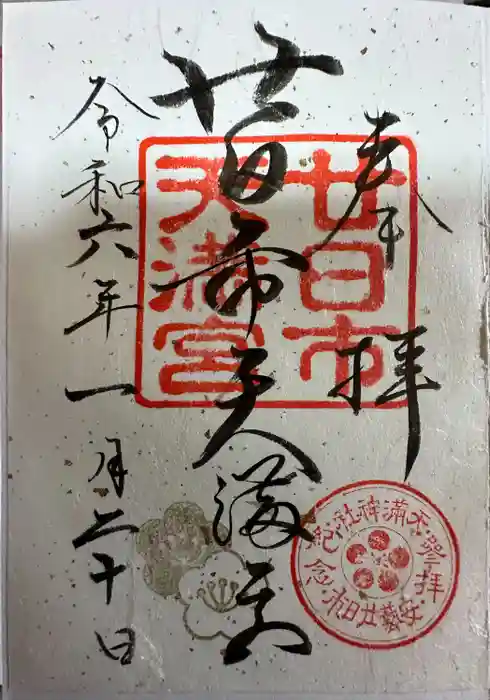 奉拝
廿日市天満宮
廿日市天満宮
令和六年一月二十日
天満神社参拝紀念
安藝廿日市